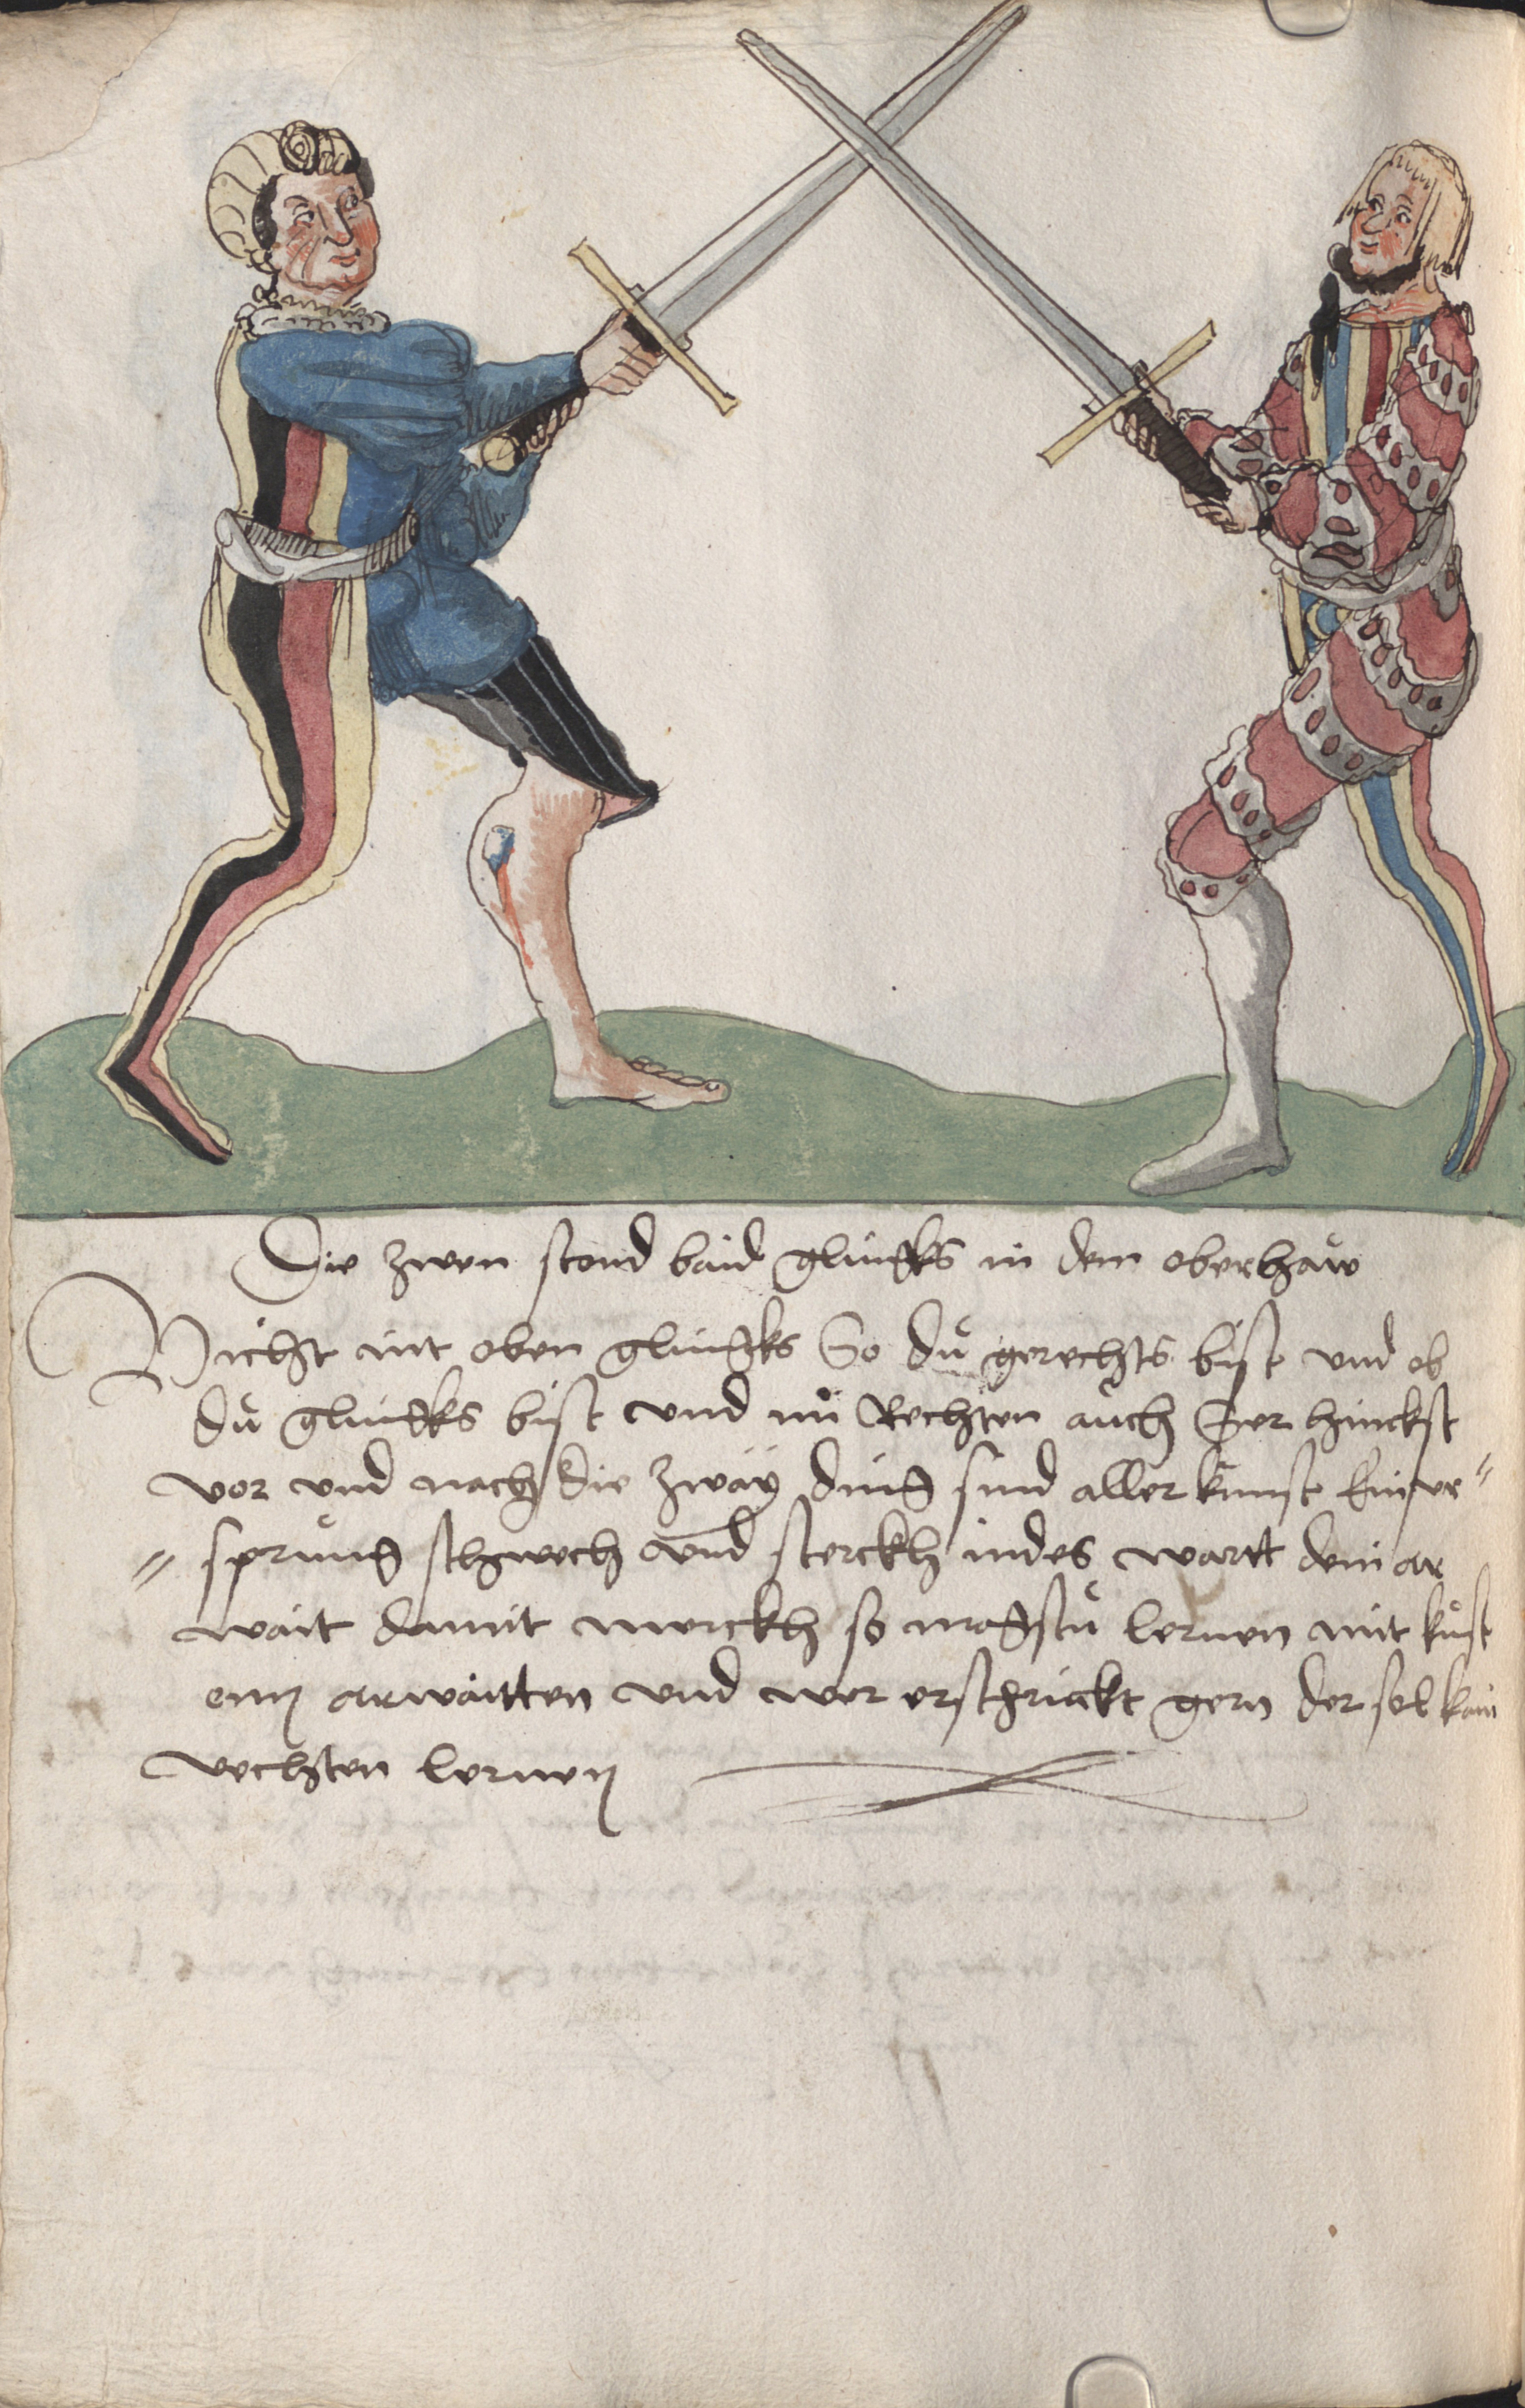 Die zwen stond baid glinckhs in dem oberhaw
Vicht nit oben glinckhs So du gerechts bist und ob
du glinckhs bist und im Rechten auch ser hinckst
vor und nach die zway ding sind aller kunst Ein vr„
„ sprung schwech und sterckh indes wartt dein ar
wait damit merckh so magstu lernen mit kůst
enn arwaitten und wer erschrickt gern der sol kain
vechten lernen